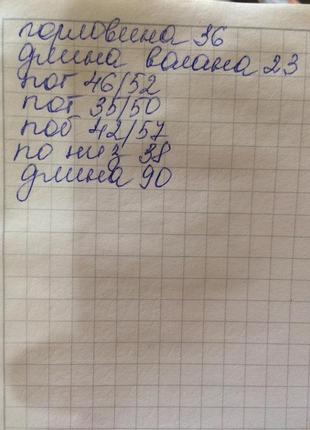 горловина 36
длина волана 23
пог 46/52
пот 35/50
поб 42/57
по низ 38
длина 90